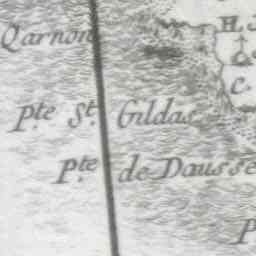 Qarnon
H.
C.
Pte. St. Gildas
Pte. de Dausse
P